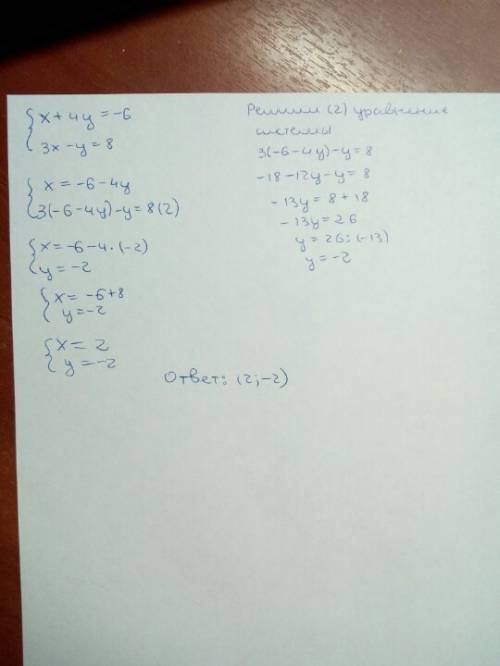 { x + 4y = -6
3x - y = 8
{ x = -6 - 4y
3(-6 - 4y) - y = 8 (2)
{ x = -6 - 4 · (-2)
y = -2
{ x = -6 + 8
y = -2
{ x = 2
y = -2
Решим (2) уравнение
системы
3(-6 - 4y) - y = 8
-18 - 12y - y = 8
-13y = 8 + 18
-13y = 26
y = 26 : (-13)
y = -2
Ответ: (2; -2)